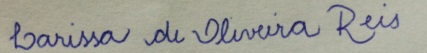 Larissa de Oliveira Reis